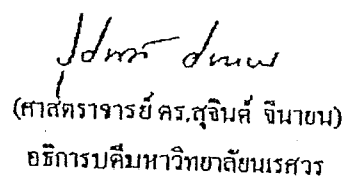 (ศาสตราจารย์ ดร.สุจินต์ จินายน)
อธิการบดีมหาวิทยาลัยนเรศวร